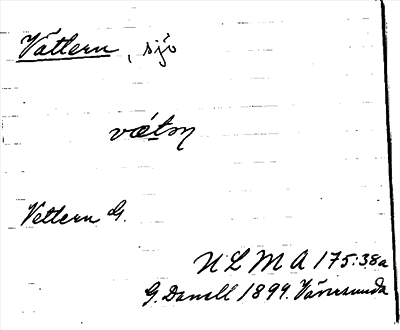 Vättern, sjö
vætn
Vettern G.
ULMA 175:38a
G. Danell 1899. Vänersunda